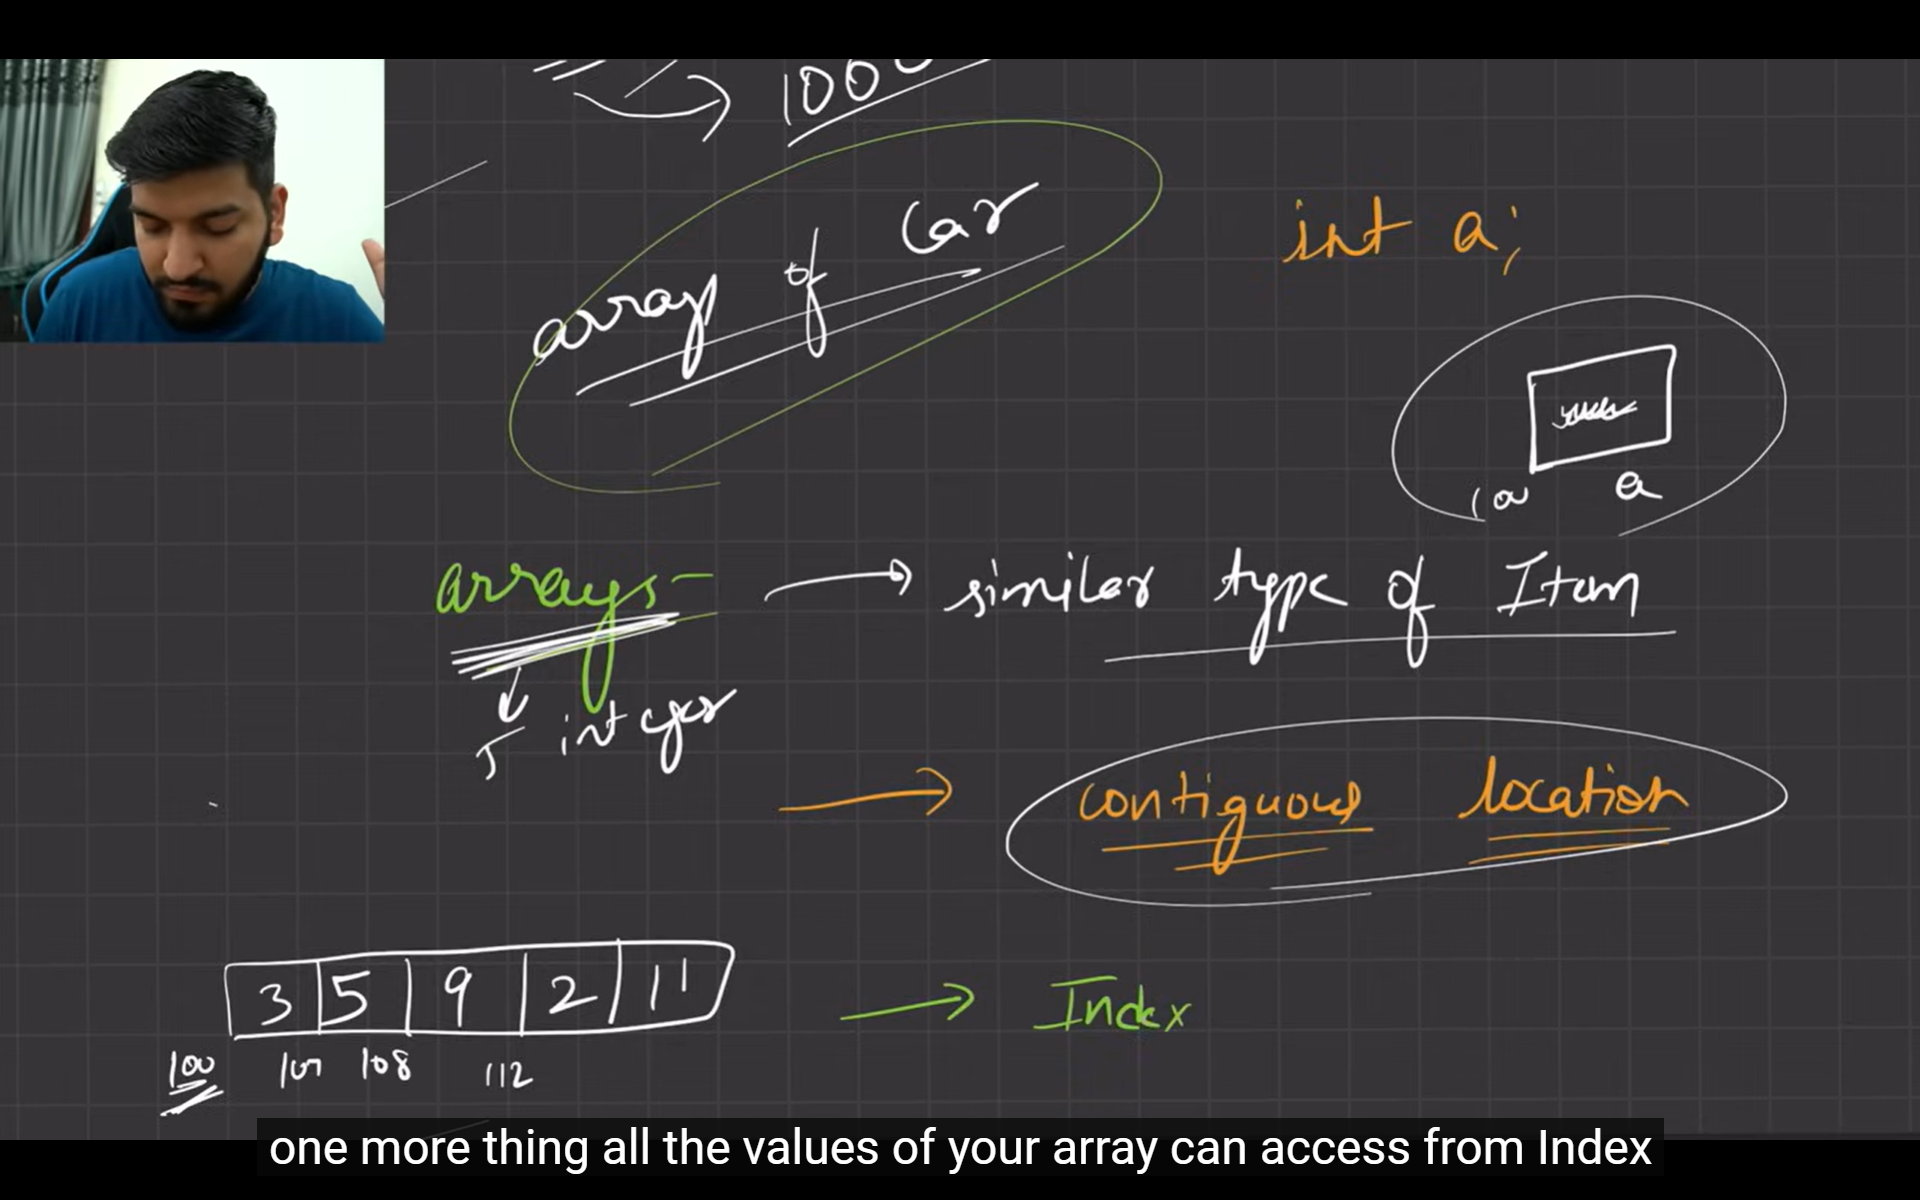 100
array of Car
int a;
a
arrays - → similar type of Item
5 integer
→ contiguous location
3 5 9 2 11 → Index
100 104 108 112
one more thing all the values of your array can access from Index